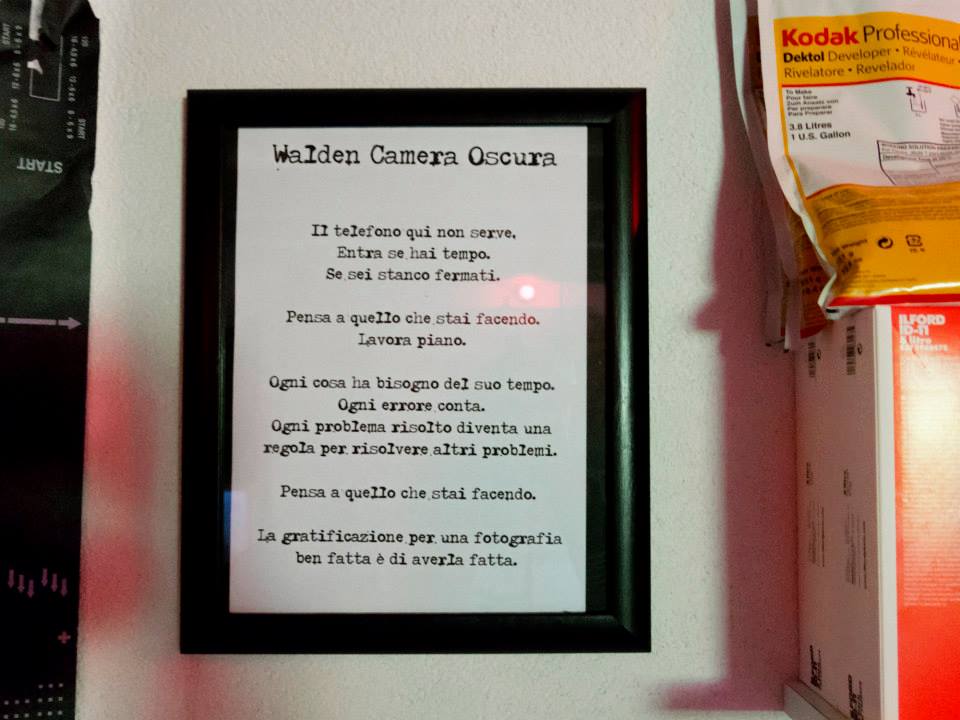 Walden Camera Oscura
Il telefono qui non serve.
Entra se hai tempo.
Se sei stanco fermati.
Pensa a quello che stai facendo.
Lavora piano.
Ogni cosa ha bisogno del suo tempo.
Ogni errore conta.
Ogni problema risolto diventa una
regola per risolvere altri problemi.
Pensa a quello che stai facendo.
La gratificazione per una fotografia
ben fatta è di averla fatta.
START
START
Kodak Professional
Dektol Developer • Révélateur •
Rivelatore • Revelador
To Make
Pour faire
Zum Ansatz von
Per preparare
Para Preparar
3.8 Litres
1 U.S. Gallon
ILFORD
ID-11
5 litre